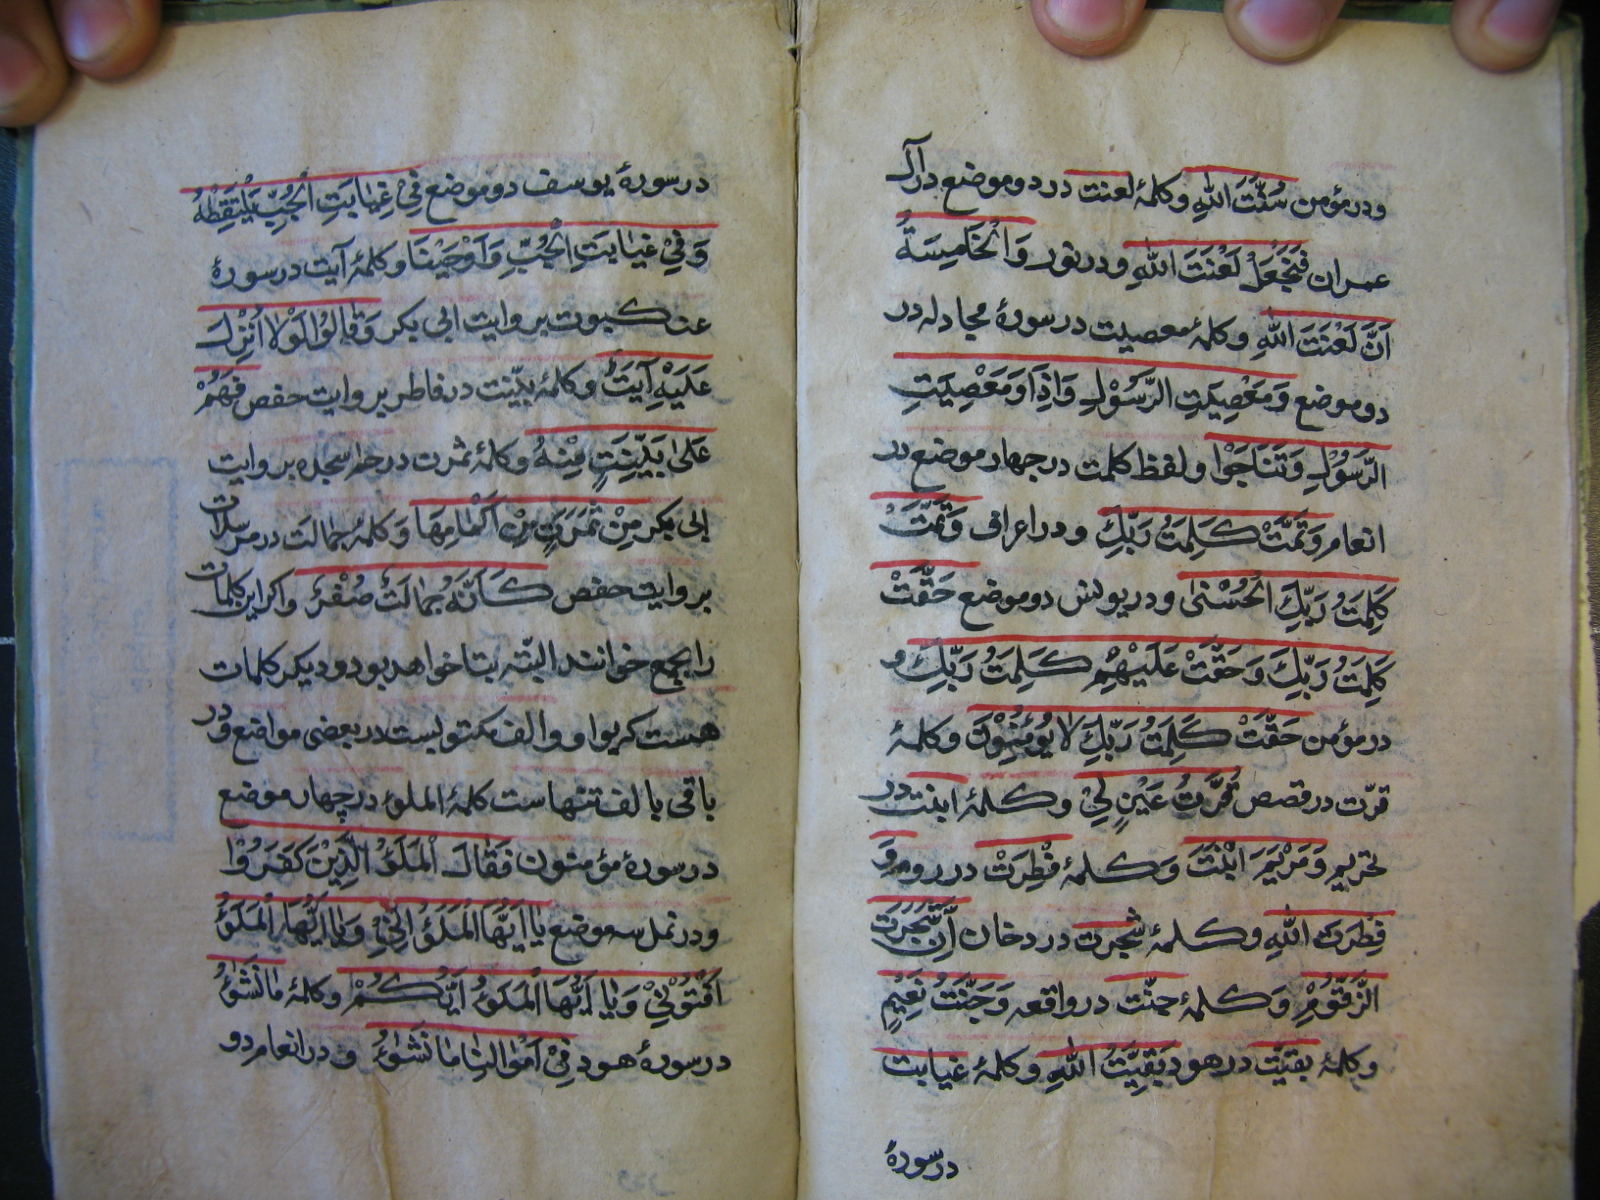 ودر مؤمن سُنَّتَ اللهِ وکلمهٔ لعنت در دو موضع در آل
عمران فَنَجْعَلْ لَعْنَتَ اللهِ ودر نور وَالْخَامِسَةُ
اَنَّ لَعْنَتَ اللهِ وکلمهٔ معصیت در سورهٔ مجادله در
دو موضع وَمَعْصِیَتِ الرَّسُوْلِ وَاِذَا وَمَعْصِیَتِ
الرَّسُوْلِ وَتَنَاجَوْا ولفظ کلمت در چهار موضع در
انعام وَتَمَّتْ کَلِمَتُ رَبِّكَ ودر اعراف وَتَمَّتْ
کَلِمَتُ رَبِّكَ الْحُسْنٰی ودر یونس دو موضع حَقَّتْ
کَلِمَتُ رَبِّكَ وَحَقَّتْ عَلَیْهِمْ کَلِمَتُ رَبِّكَ و
در مؤمن حَقَّتْ کَلِمَتُ رَبِّكَ لَا یُؤْمِنُوْنَ وکلمهٔ
قرّت در قصص قُرَّتُ عَیْنٍ لِیْ وکلمهٔ ابنت در
تحریم وَمَرْیَمَ ابْنَتَ وکلمهٔ فِطْرَتْ در روم وَ
فِطْرَتَ اللهِ وکلمهٔ شجرت در دخان اِنَّ شَجَرَتَ
الزَّقُّوْمِ وکلمهٔ جنّت در واقعه وَجَنَّتُ نَعِیْمٍ
وکلمهٔ بقیّت در هود بَقِیَّتُ اللهِ وکلمهٔ غیابت
در سورهٔ
در سورهٔ یوسف دو موضع فِیْ غِیٰابَتِ الْجُبِّ یَلْتَقِطْهُ
وَفِیْ غیٰابَتِ الْجُبِّ وَاَوْحَیْنَا وکلمهٔ آیت در سورهٔ
عنکبوت بروایت ابی بکر وَقَالُوْا لَوْلَا اُنْزِلَ
عَلَیْهِ آیَتٌ وکلمهٔ بیّنت در فاطر بروایت حفص فَهُمْ
عَلٰی بَیِّنَتٍ مِنْهُ وکلمهٔ ثمرت در حم سجده بروایت
ابی بکر مِنْ ثَمَرَتٍ مِنْ اَکْمَامِهَا وکلمهٔ جمالت در مرسلات
بروایت حفص کَاَنَّهُ جِمَالَتٌ صُفْرٌ واکر این کلمات
را بجمع خوانند البته بتا خواهد بود ودیکر کلمات
هست کر بواو والف مکتوبست در بعضی مواضع ودر
باقی بالف تنهاست کلمهٔ الملؤ در چهار موضع
در سورهٔ مؤمنون فَقَالَ الْمَلَؤُ الَّذِیْنَ کَفَرُوْا
ودر نمل سه موضع یٰا اَیُّهَا الْمَلَؤُ اِنِّیْ وَیٰا اَیُّهَا الْمَلَؤُ
اَفْتُوْنِیْ وَیٰا اَیُّهَا الْمَلَؤُ اَیُّکُمْ وکلمهٔ مٰا نَشٰؤُ
در سورهٔ هود فِیْ اَمْوٰالِنٰا مٰا نَشٰؤُ ودر انعام دو